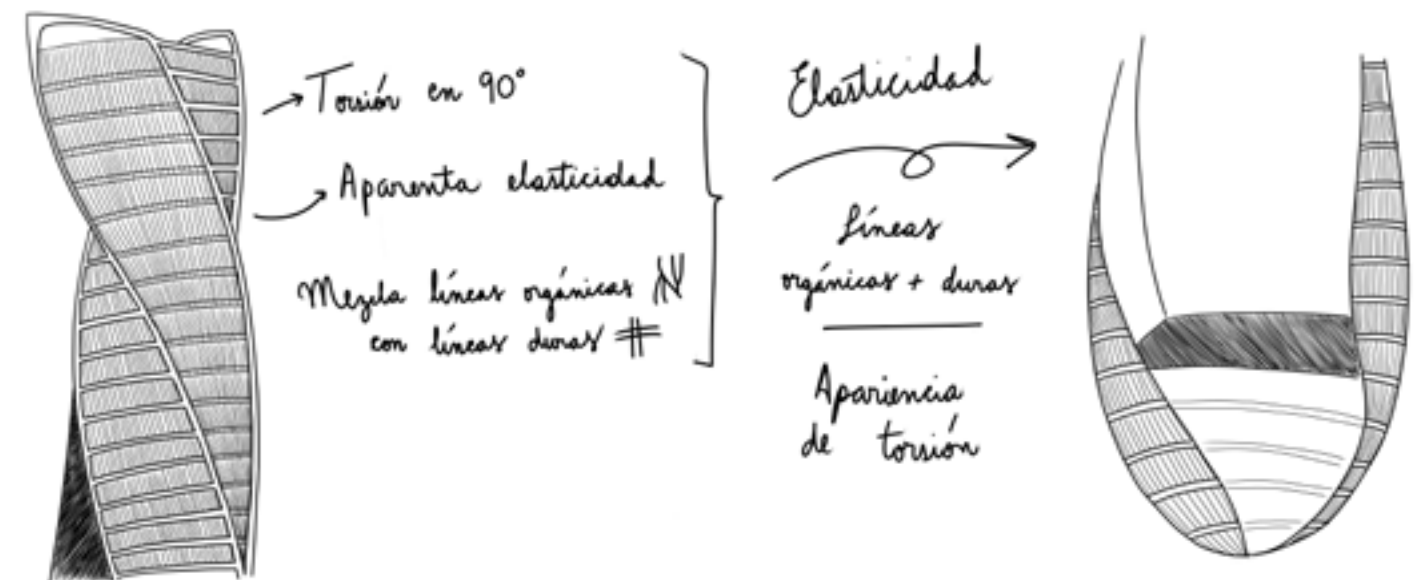 Torsión en 90°
Aparenta elasticidad
Mezcla líneas orgánicas
con líneas duras
Elasticidad
Líneas
orgánicas + duras
Apariencia
de torsión